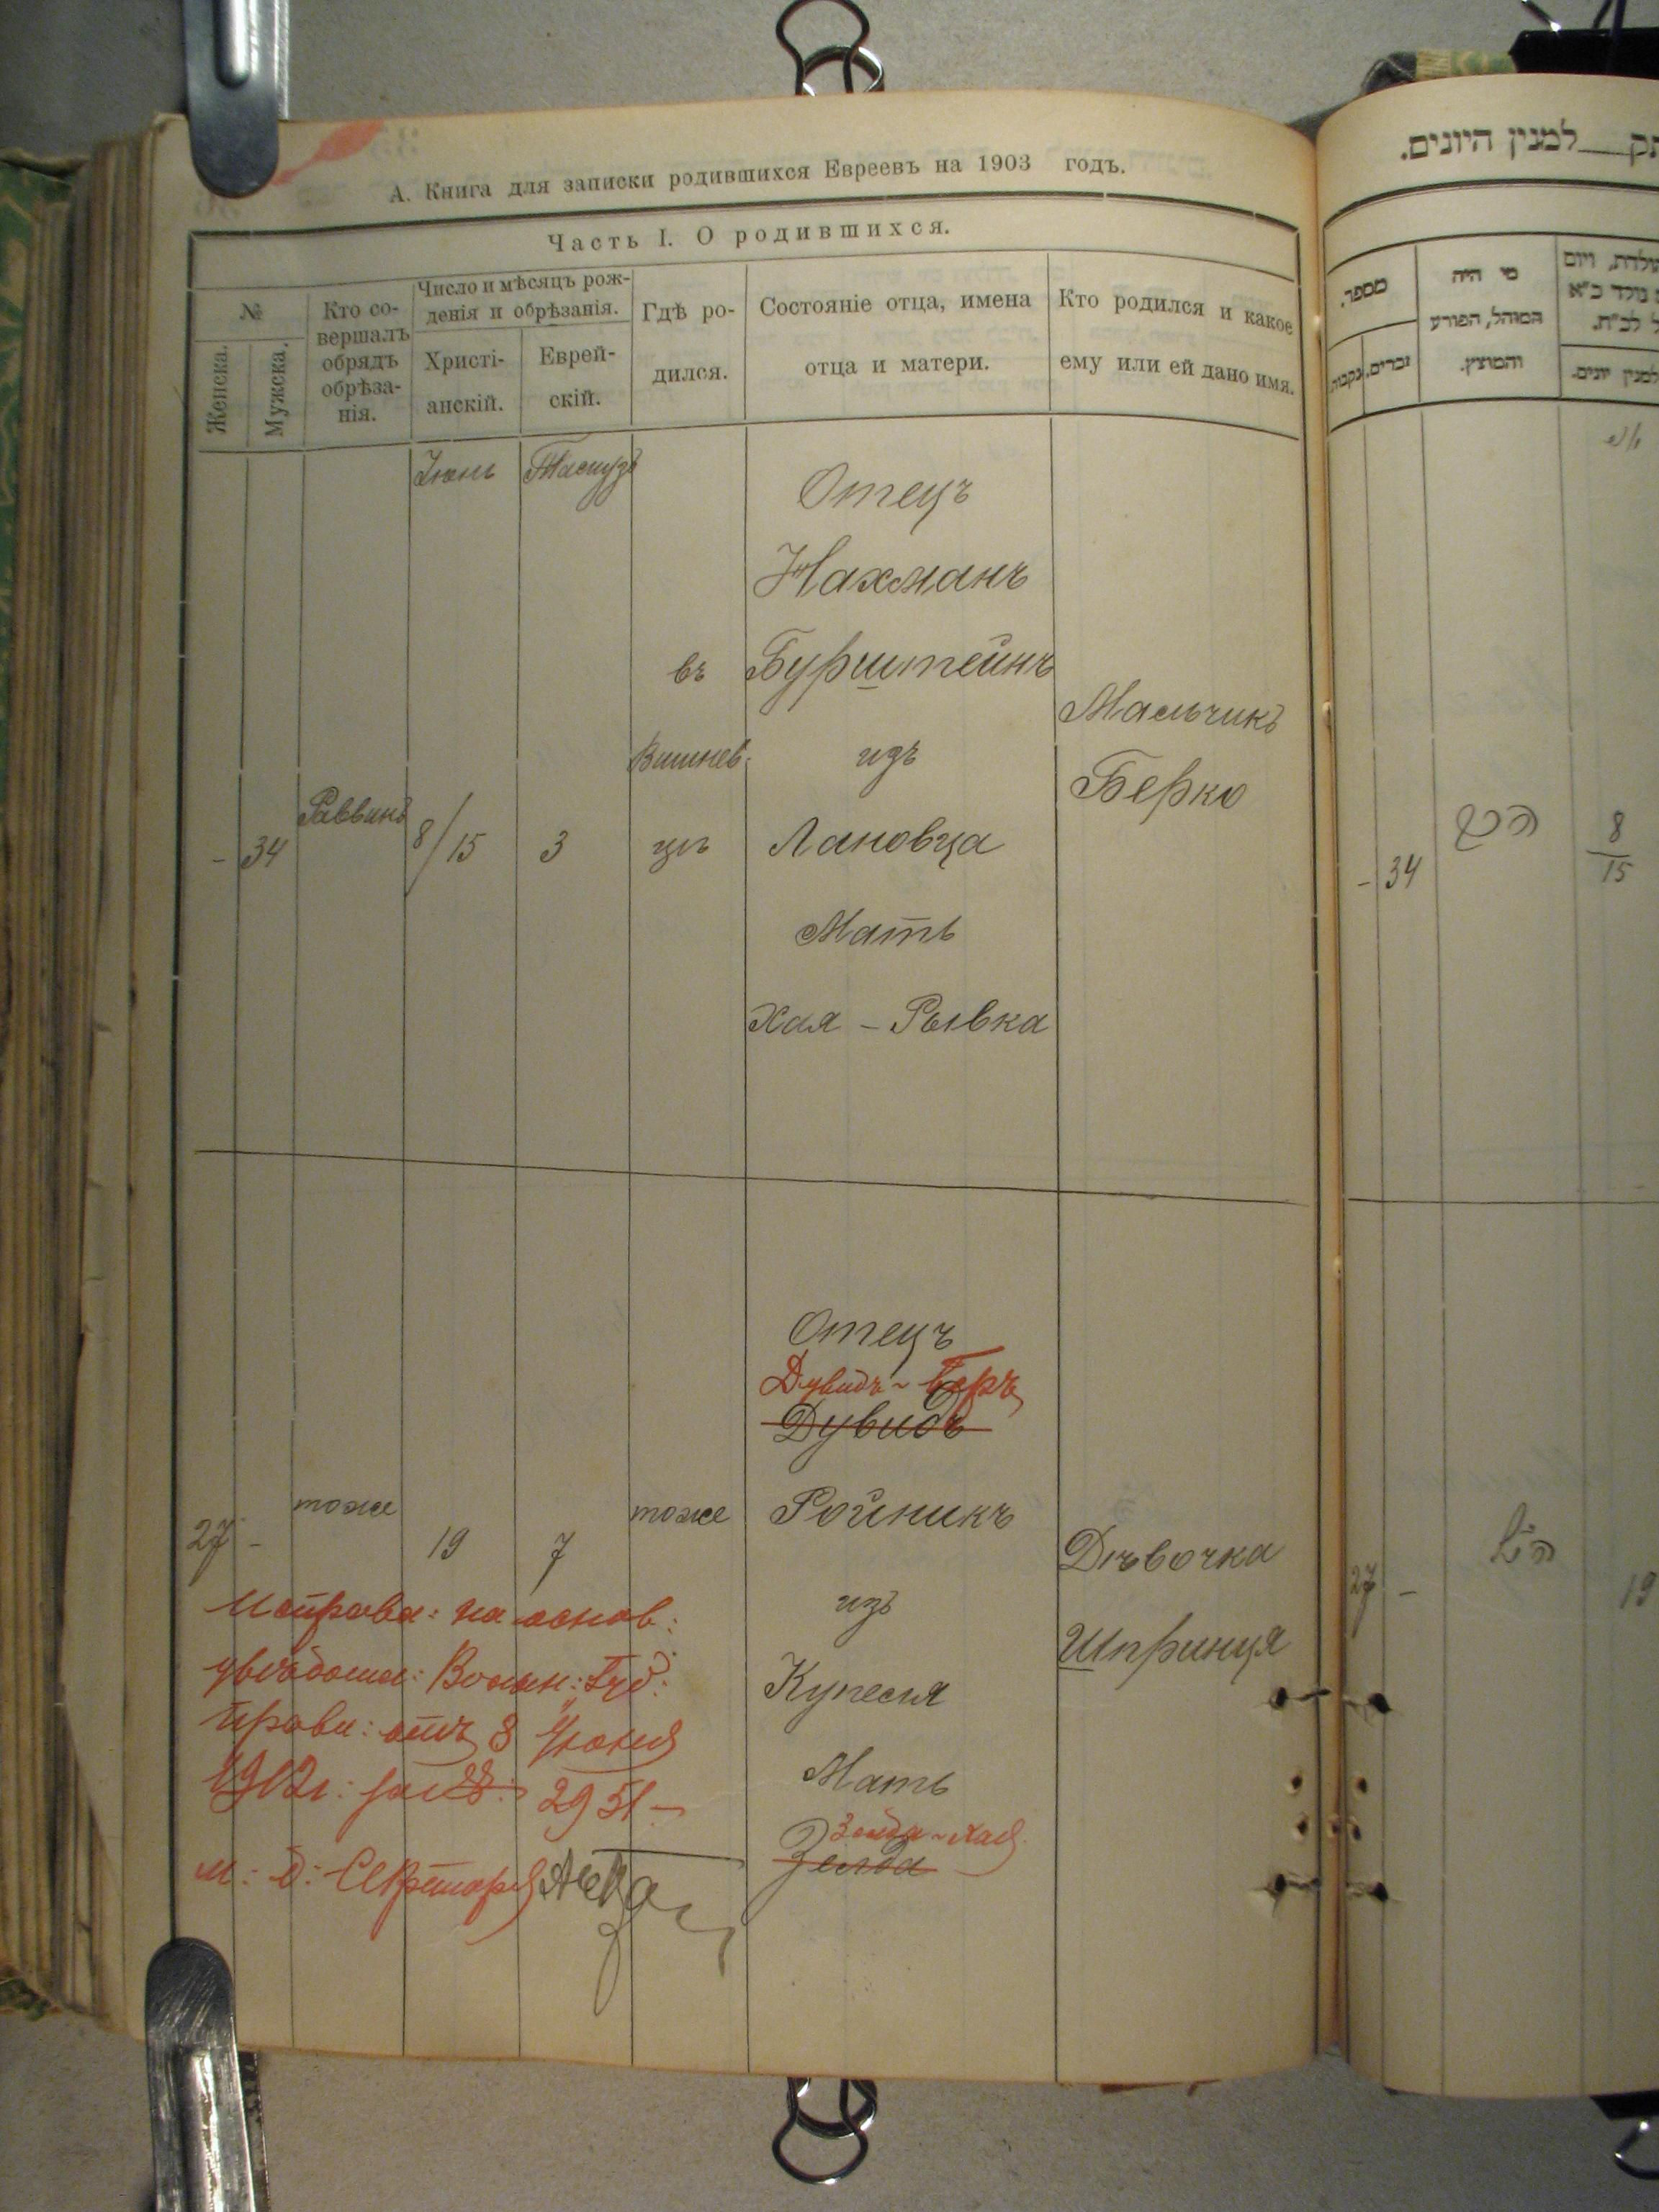 А. Книга для записки родившихся Евреевъ на 1903 годъ.
Часть I. О родившихся.
№
Женска.
Мужска.
Кто со-
вершалъ
обрядъ
обрѣза-
нія.
Число и мѣсяцъ рож-
денія и обрѣзанія.
Христі-
анскій.
Еврей-
скій.
Гдѣ ро-
дился.
Состояніе отца, имена
отца и матери.
Кто родился и какое
ему или ей дано имя.
Іюнь
Тамузъ
- 34
Раввинъ
8/15
3
въ
Вишнев-
цѣ
Отецъ
Нахманъ
Бурштейнъ
изъ
Лановца
Мать
Хая - Рывка
Мальчикъ
Берко
27 -
тоже
19
7
тоже
Отецъ
Дувидъ - Беръ
Дувидъ
Ройникъ
изъ
Купеля
Мать
Зельда - Хая
Зелда
Дѣвочка
Шпринця
Исправл: на основ:
увѣдомл: Волын: Губ:
Правл: отъ 8 Іюня
1912г: за №: 2951 -
И: д: Секретаря
למנין היונים.
מספר.
זכרים.
נקבות
מי היה
המוהל, הפורע
והמוצץ.
ויום
נולד כ"א
למנין יונים.
- 34
הרב
8
15
27 -
הנ"ל
19